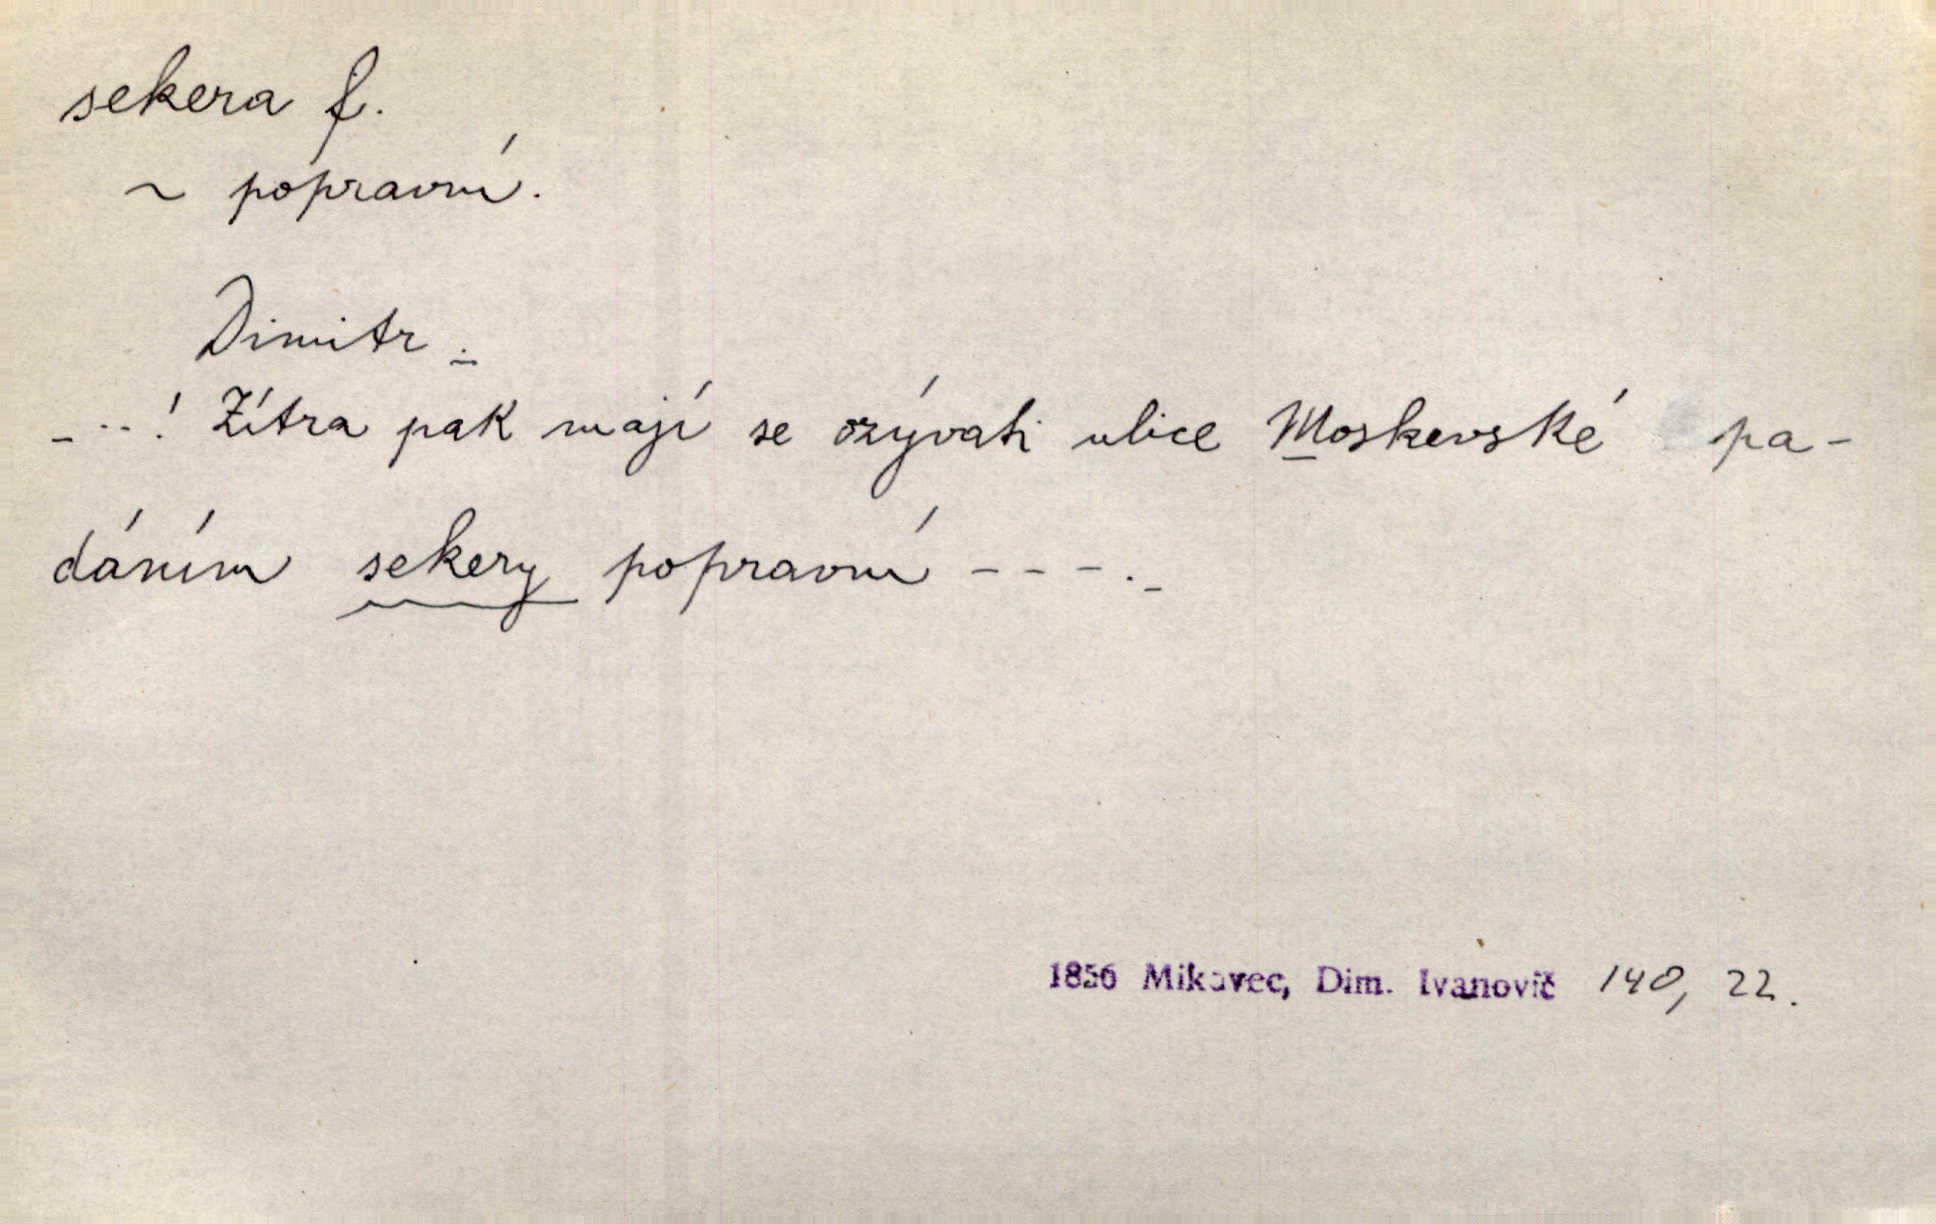 sekera f.
~ popravní.
Dimitr.
---! Zítra pak mají se ozývati ulice Moskevské pa-
dáním sekery popravní ---.
1856 Mikovec, Dim. Ivanovič 140, 22.